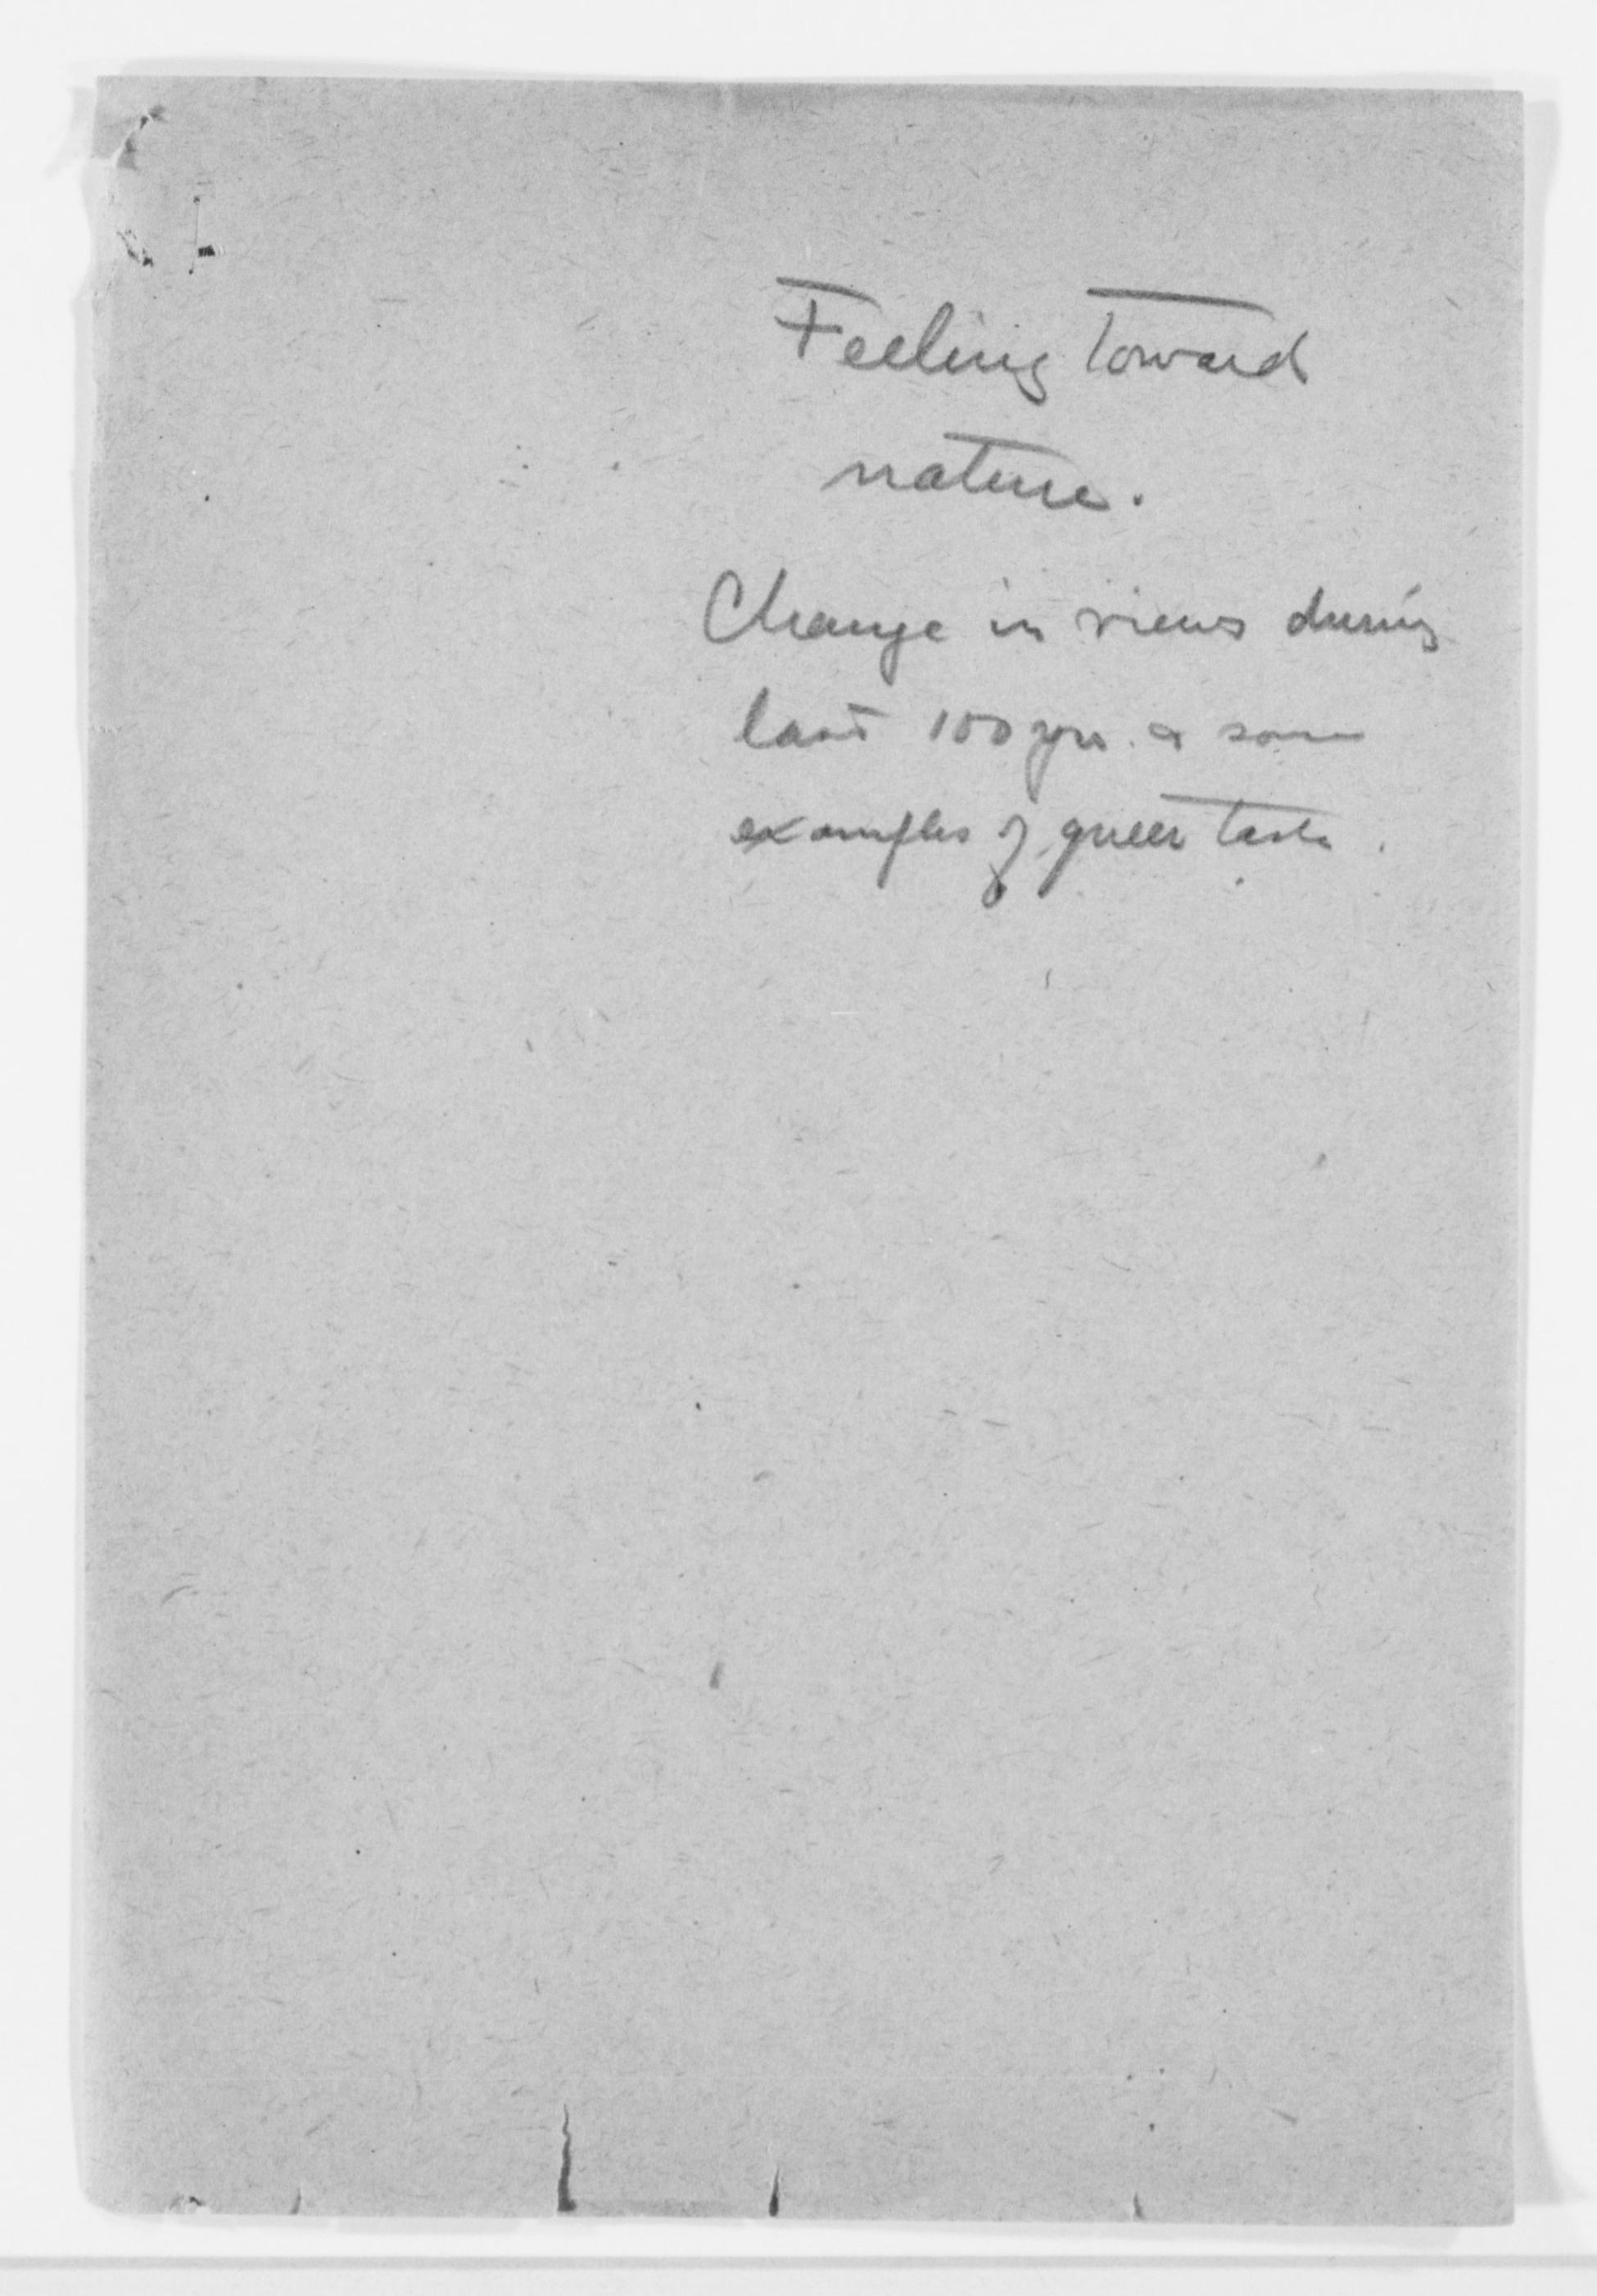 Feeling toward
nature.
Change in views during
last 100 yrs. & some
examples of queer taste.